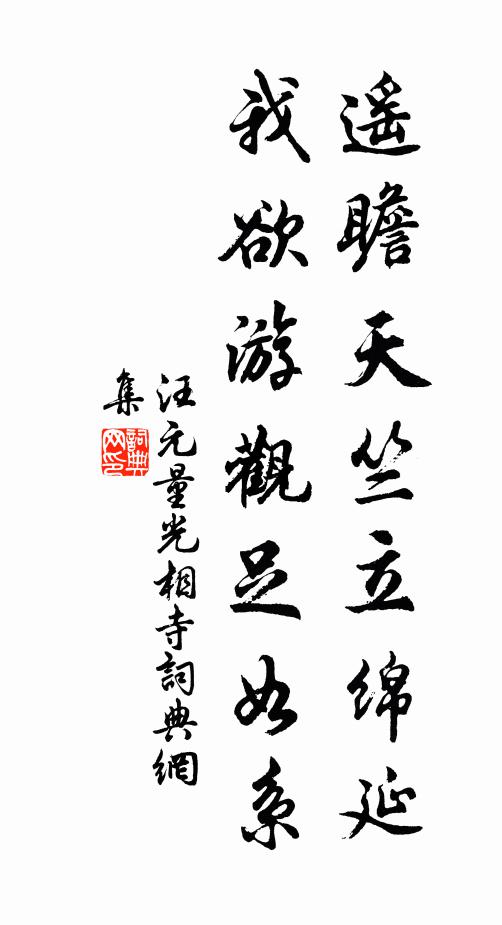 遙瞻天竺立綿延
我欲游觀足如系
汪元量光相寺詞典網
集
詞典
网印